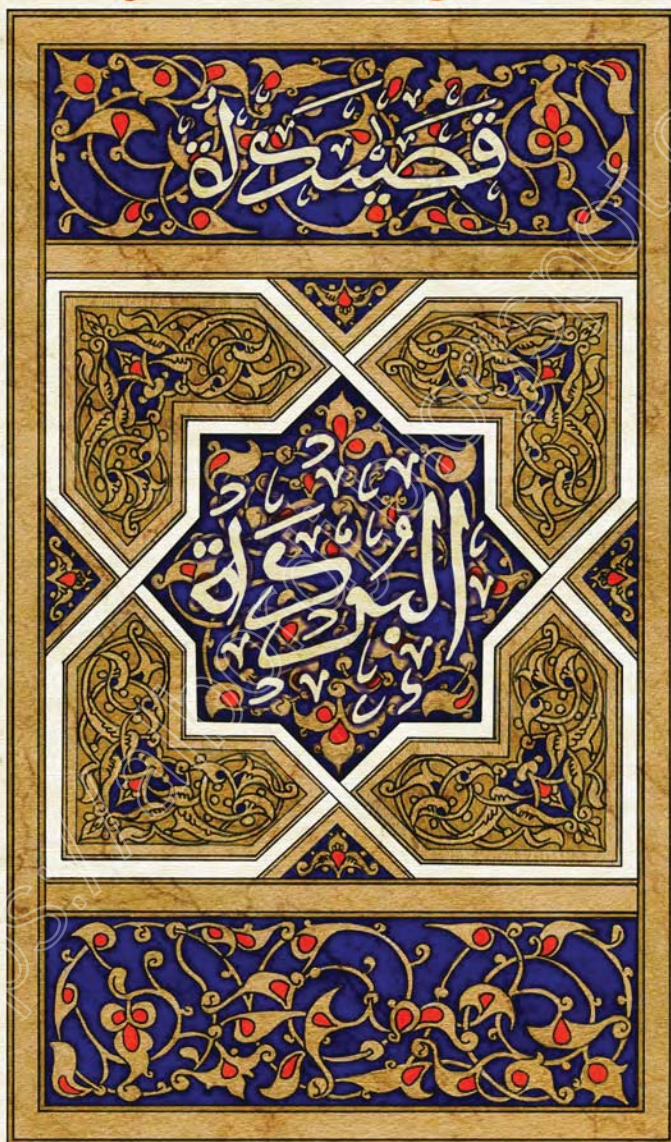 قَصِيدَة
البُردَة